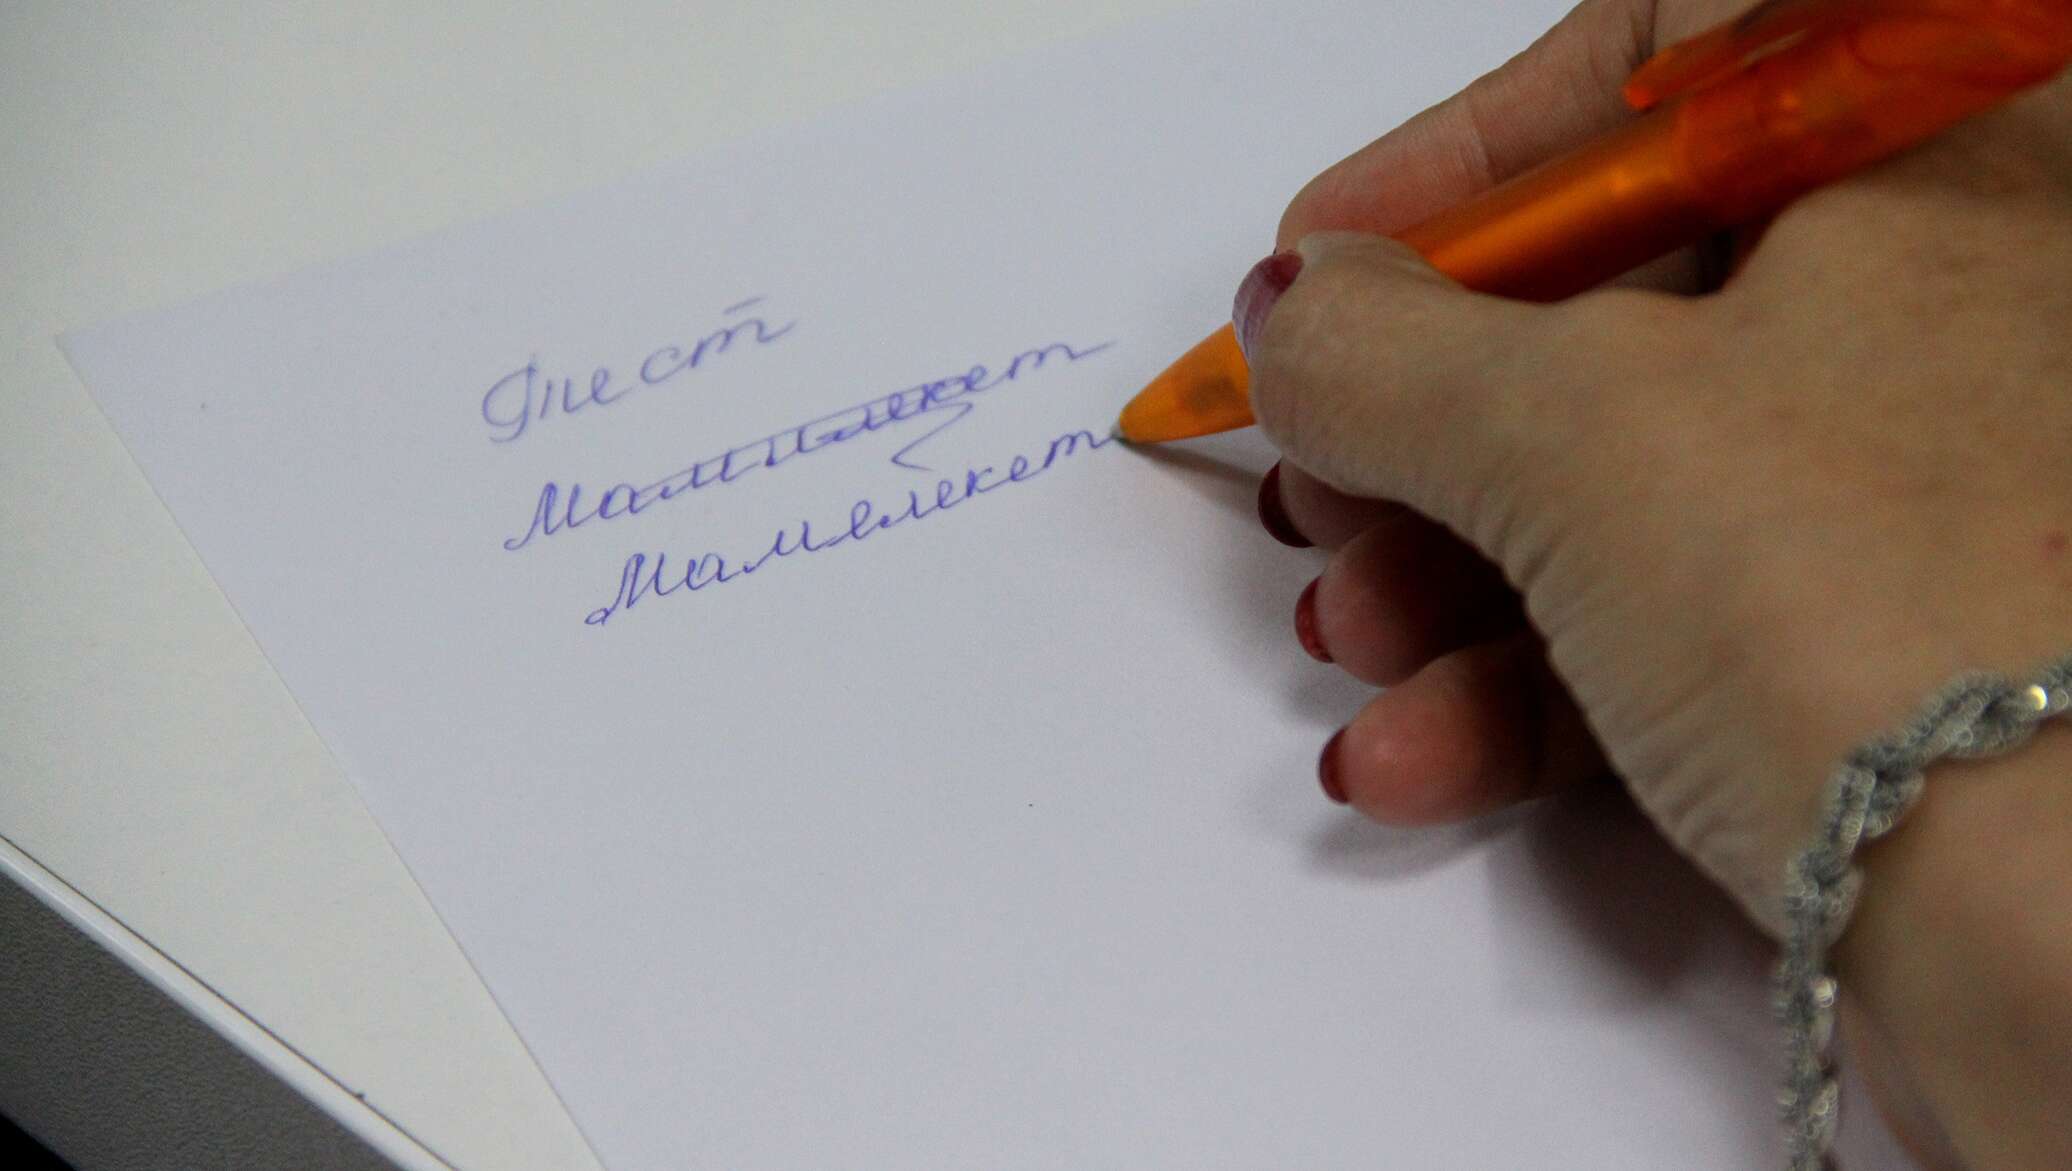 Тест
Мамилекет
Мамелекет